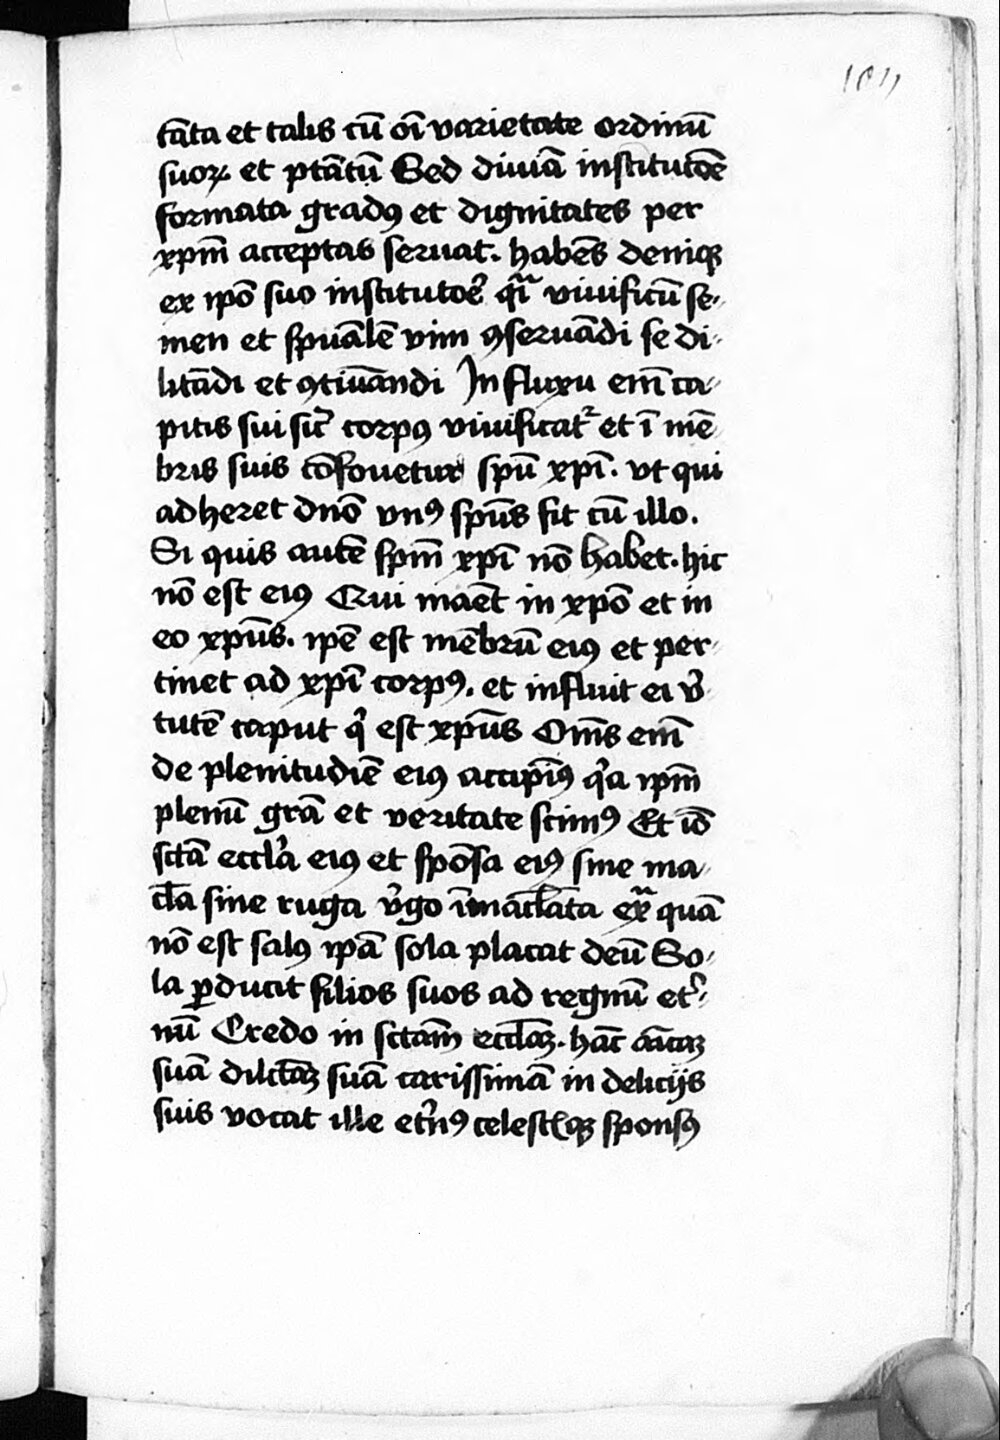 tāta et talis cū oī varietate ordinū
suoꝝ et ptātū Sed diuiā institutōe
formata gradꝰ et dignitates per
xpm̄ acceptas seruat. habēs deniqꝫ
ex ipō suo institutoꝛ̄e vivificū se-
men et spūalē vim ꝯseruādi se di-
litādi et ꝯtiuāndi Influxu em̄ ca-
pitis sui sic̄ corpꝰ viuificatᷣ et ī mē
bris suis cōfouetur spū xpī. vt qui
adheret dnō vnꝰ spūs fit cū illo.
Si quis autē spm̄ xpī nō habet. hic
nō est eiꝰ Qui maēt in xpō et in
eo xpūs. ipē est mēbrū eiꝰ et per-
tinet ad xpī corpꝰ. et influit ei v̾-
tutē caput qͥ est xpūs Om̄s em̄
de plenitudīe eiꝰ accipīꝰ qͥa ipm̄
plenū grā et veritate scimꝰ Et iō
sctā eccl̾a eiꝰ et spōsa eiꝰ sine ma-
cl̄a sine ruga v̾go īmacl̄ata ex̄ quā
nō est salꝰ ipā sola placat deū So-
la ꝑducit filios suos ad regnū et̾-
nū Credo in sctam̄ eccl̄aꝫ. hāc aīcaꝫ
suā dilc̄aꝫ suā carissimā in delicijs
suis vocat ille et̾nꝰ celestꝭqꝫ sponsꝰ